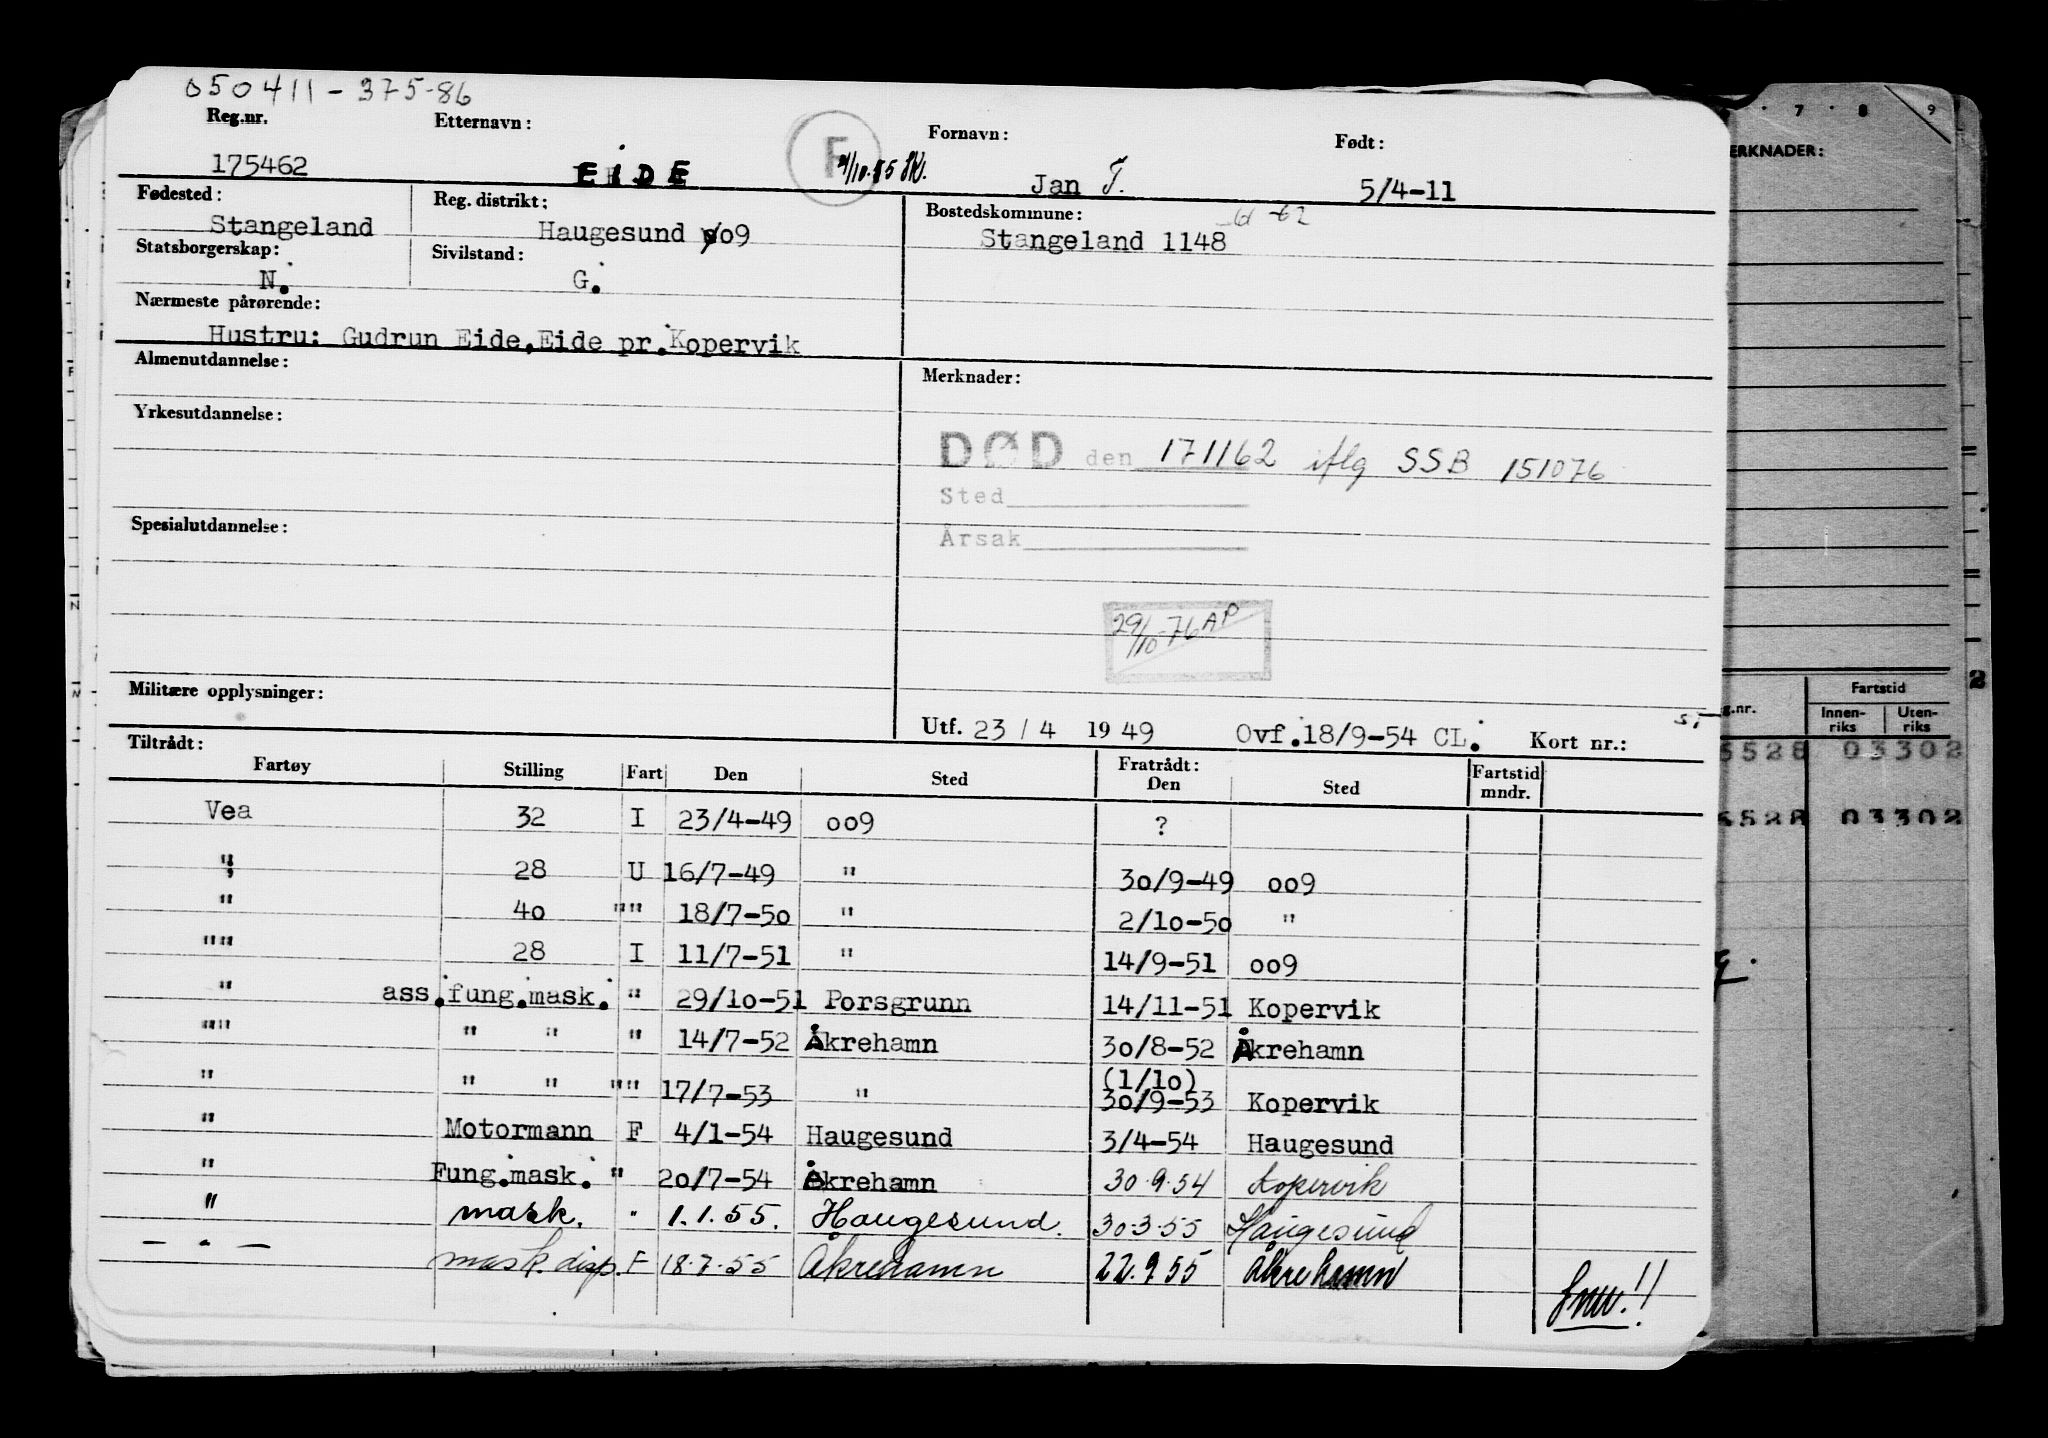 050411-375-86
Reg.nr. Etternavn: Fornavn: Født:
175462 EIDE F Jan T. 5/4-11
Fødested: Reg. distrikt: Bostedskommune:
Stangeland Haugesund 009 Stangeland 1148
Statsborgerskap: Sivilstand:
N. G.
Nærmeste pårørende:
Hustru: Gudrun Eide, Eide pr. Kopervik
Almenutdannelse: Merknader:
Yrkesutdannelse:
DØD den 171162 iflg SSB 151076
Sted
Årsak
Spesialutdannelse:
29/10-76 AP
Militære opplysninger:
Utf. 23/4 1949 Ovf. 18/9-54 CL. Kort nr.:
Tiltrådt: Fratrådt:
Fartøy Stilling Fart Den Sted Den Sted Fartstid mndr.
Vea 32 I 23/4-49 oo9 ?
" 28 U 16/7-49 " 30/9-49 oo9
" 4o "" 18/7-5o " 2/1o-5o "
"" 28 I 11/7-51 " 14/9-51 oo9
" ass.fung.mask. " 29/1o-51 Porsgrunn 14/11-51 Kopervik
"" " " " 14/7-52 Åkrehamn 3o/8-52 Åkrehamn
" " " "" 17/7-53 " (1/1o) 3o/9-53 Kopervik
" Motormann F 4/1-54 Haugesund 3/4-54 Haugesund
" Fung.mask. " 2o/7-54 Åkrehamn 30.9.54 Kopervik
" mask. " 1.1.55. Haugesund. 30.3.55 Haugesund
— " — mask.disp. F 18.7.55 Åkrehamn 22.9.55 Åkrehamn
snu!!
7 8 9
ERKNADER:
g.nr. Fartstid
Innen-riks Uten-riks
2
5528 03302
5528 03302